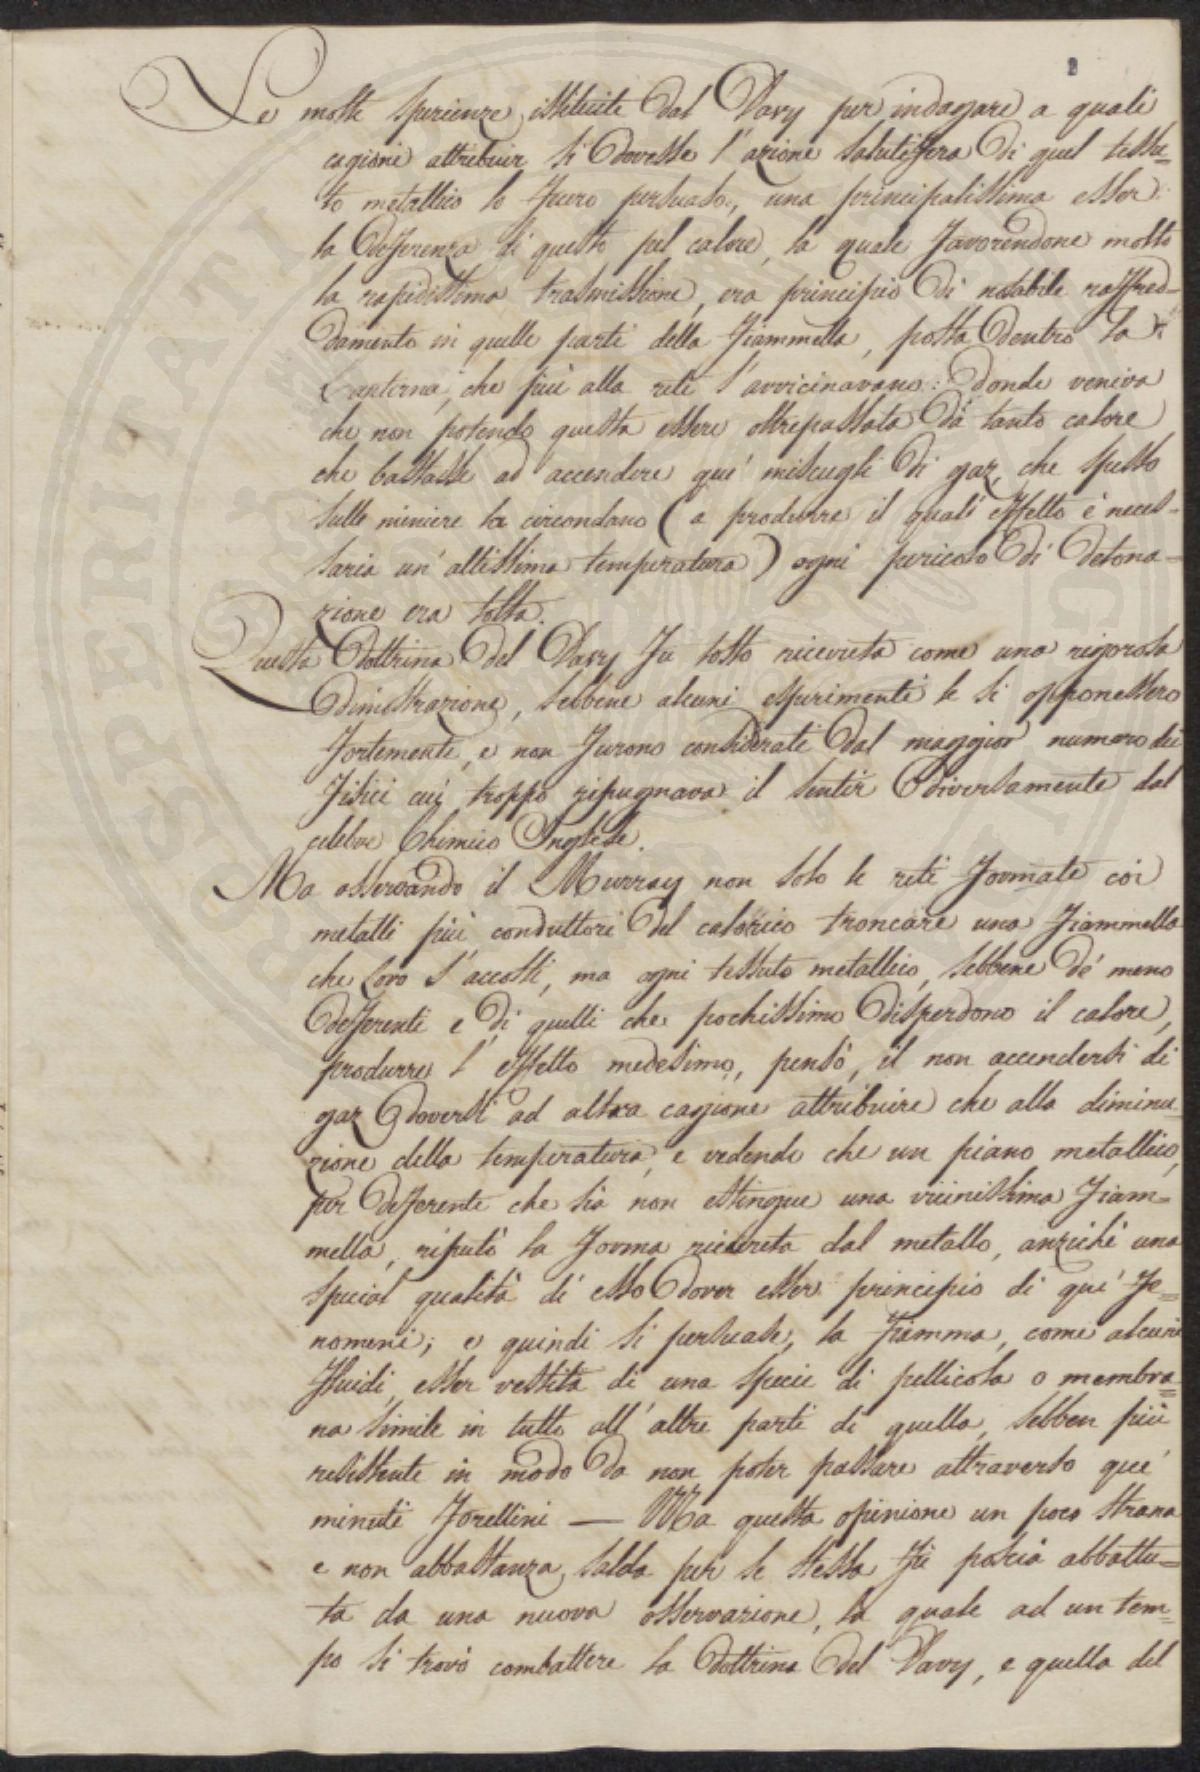 2
Le molte sperienze istituite dal Davy per indagare a quali
cagioni attribuir si dovesse l'azione salutifera di quel tessu=
to metallico lo fecero persuaso, una principalissima esser
la deferenza di questo pel calore, la quale favorendone molto
la rapidissima trasmissione, era principio di notabile raffred=
damento in quelle parti della fiammella, posta dentro la
Lanterna, che più alla rete s'avvicinavano: donde veniva
che non potendo questa essere oltrepassata da tanto calore
che bastasse ad accendere que' miscugli di gaz, che spesso
sulle miniere la circondano (a produrre il quali effetto è neces=
saria un' altissima temperatura) ogni pericolo di detona=
zione era tolto.
Questa dottrina del Davy fu tosto ricevuta come una rigorosa
dimostrazione, sebbene alcuni esperimenti le si opponessero
fortemente, e non furono considerati dal maggior numero dei
fisici cui troppo ripugnava il sentir diversamente dal
celebre Chimico Inglese.
Ma osservando il Murray non solo le reti formate coi
metalli più conduttori del calorico troncare una fiammella
che loro s'accosti, ma ogni tessuto metallico, sebbene de' meno
deferenti e di quelli che pochissimo disperdono il calore,
produrre l'effetto medesimo, pensò, il non accendersi di
gaz doversi ad altra cagione attribuire che alla diminu=
zione della temperatura, e vedendo che un piano metallico,
per deferente che sia non estingue una vicinissima fiam=
mella, riputò la forma ricevuta dal metallo, anzichè una
special qualità di esso dover esser principio di que' fe=
nomeni; e quindi si persuase, la fiamma, come alcuni
fluidi esser vestita di una specie di pellicola o membra=
na simile in tutto all'altre parti di quella, sebben più
resistente in modo da non poter passare attraverso que'
minuti forellini — Ma questa opinione un poco strana
e non abbastanza salda per se stessa fu poscia abbattu=
ta da una nuova osservazione, la quale ad un tem=
po si trovò combattere la dottrina del Davy, e quella del
SPERITATI